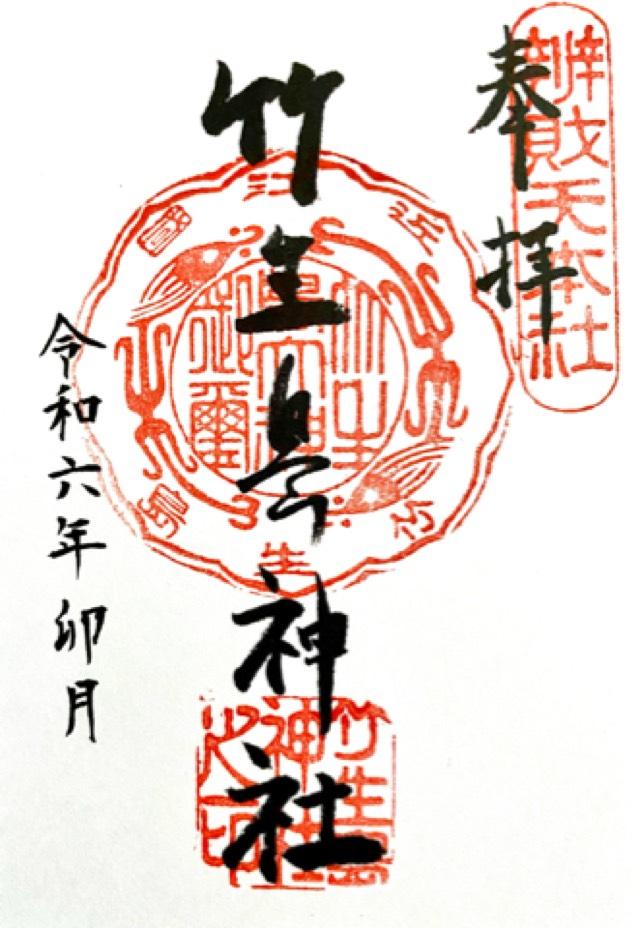 辨財天本社
奉拝
竹生島神社
近江國竹生島
竹生島神社之印
令和六年 卯月